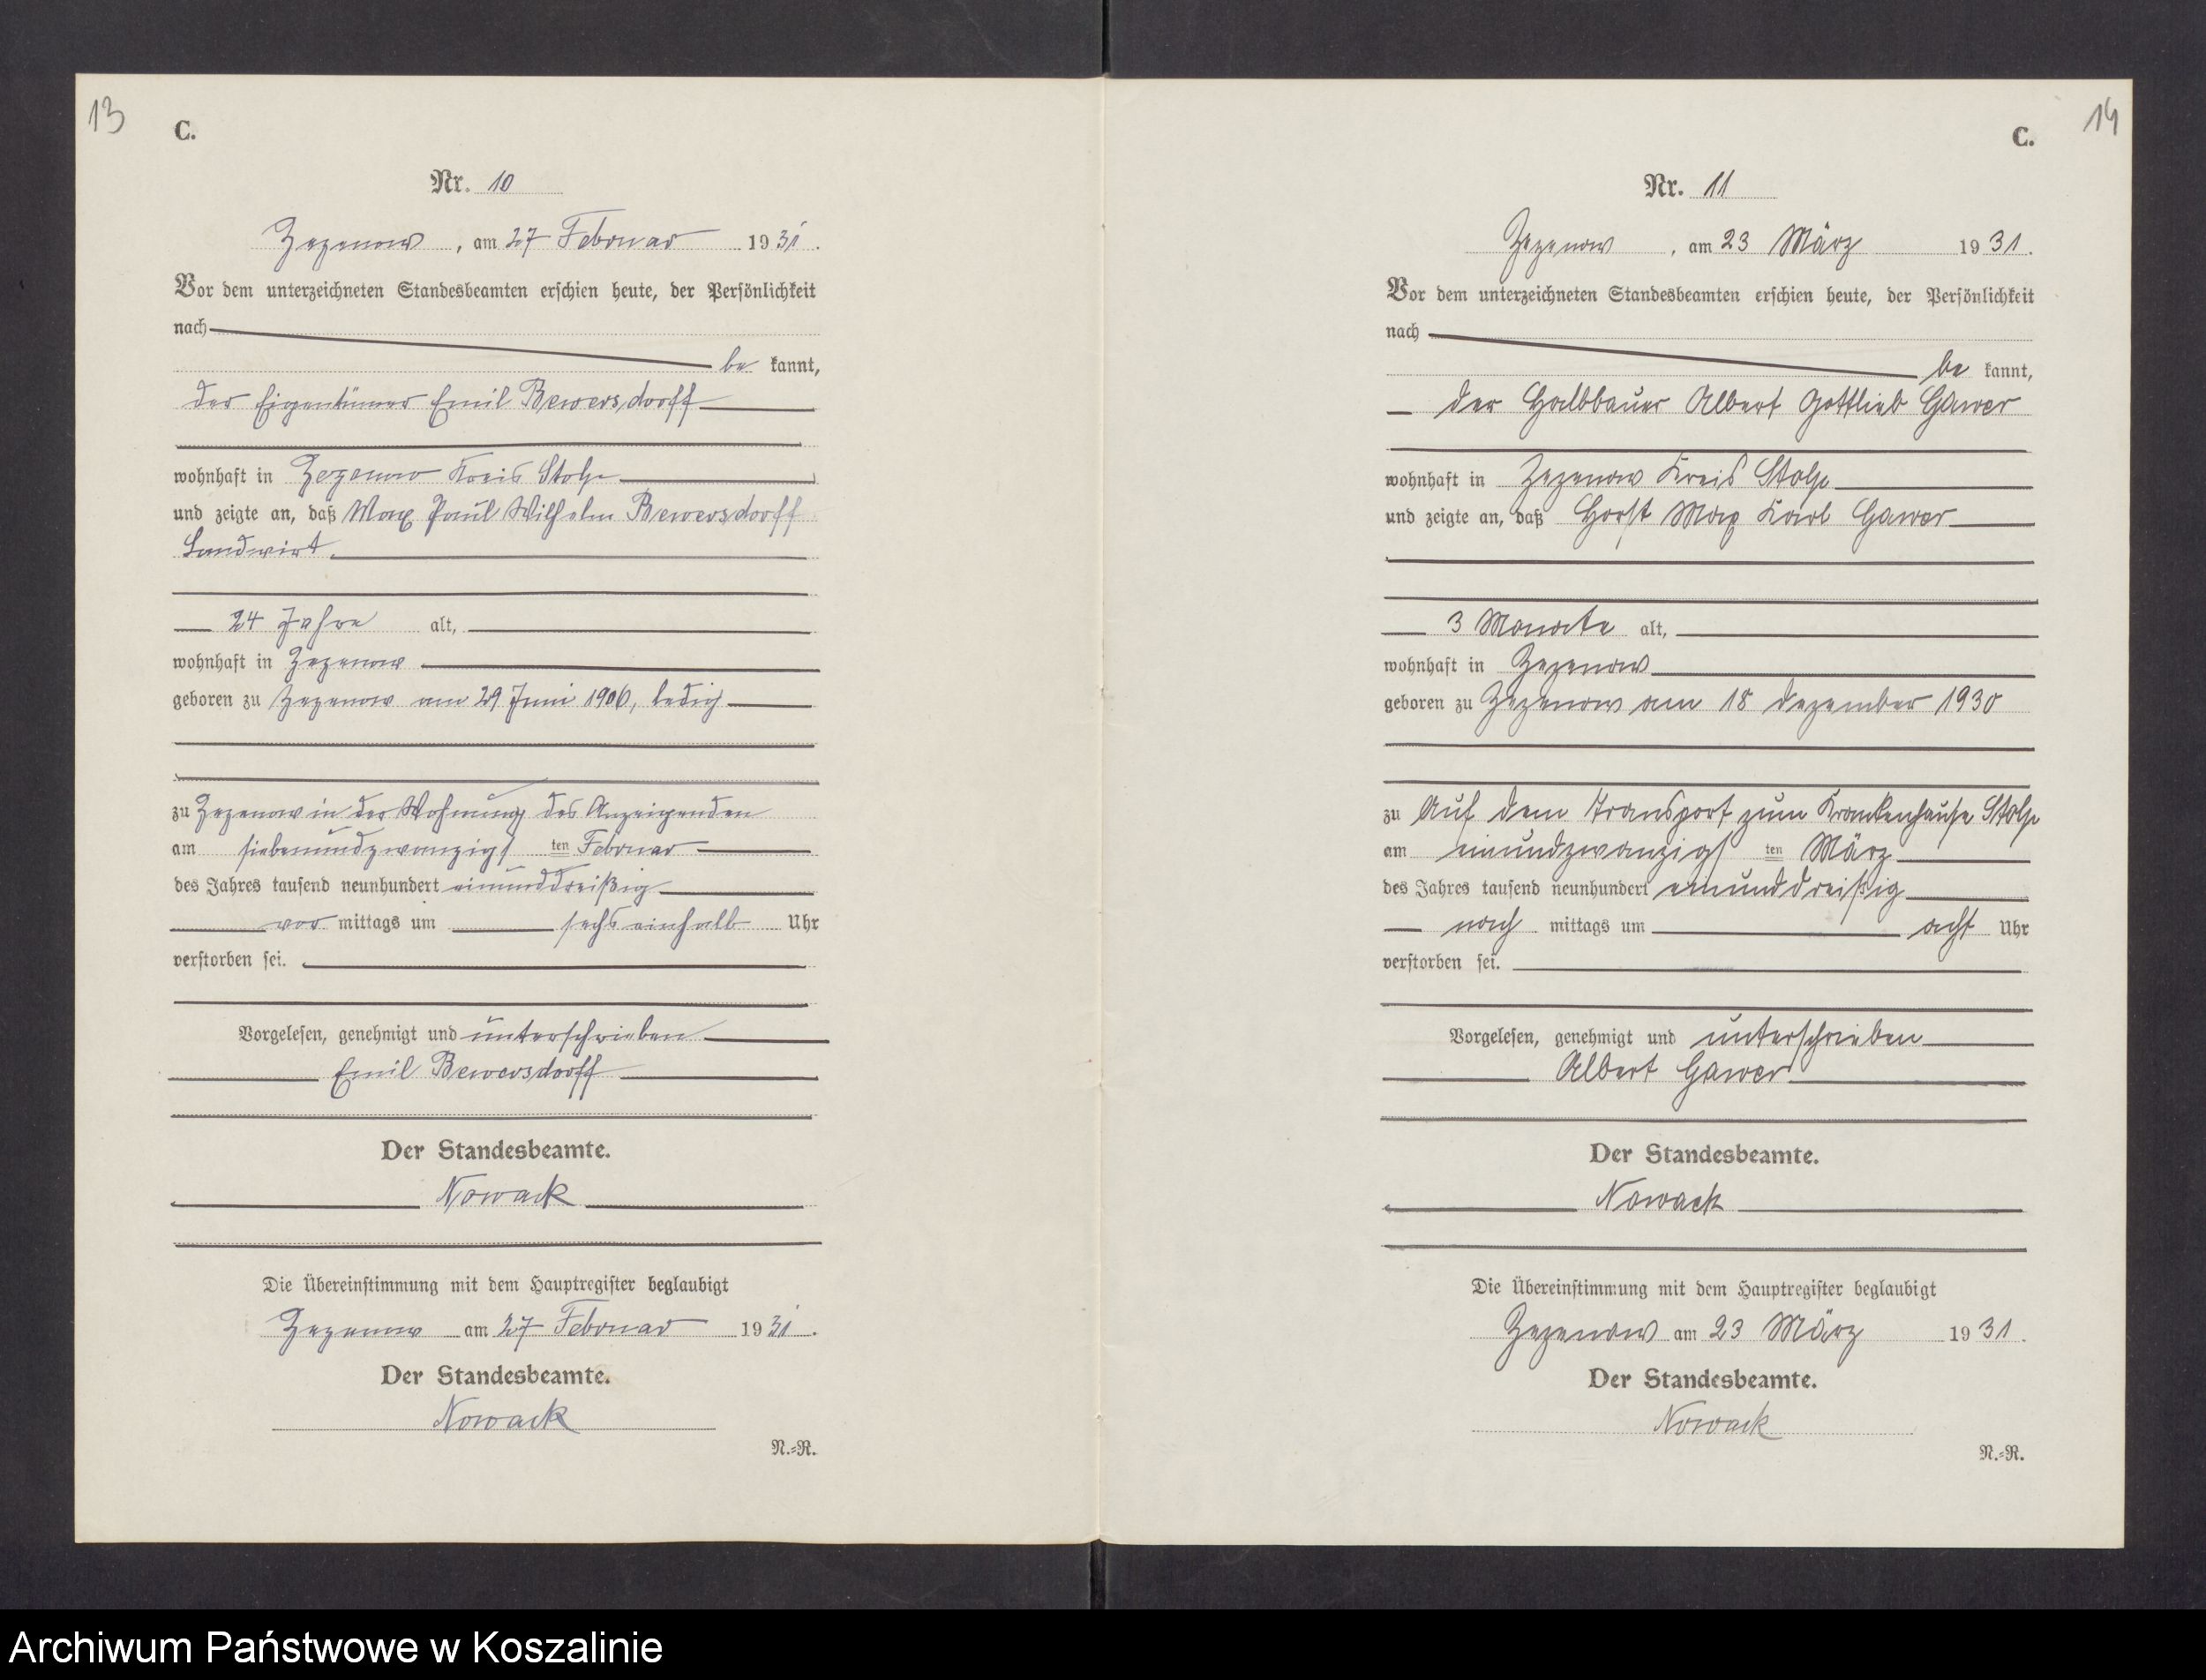 13
C.
Nr. 10
Zezenow, am 27 Februar 1931.
Vor dem unterzeichneten Standesbeamten erschien heute, der Persönlichkeit
nach
be kannt,
der Eigentümer Emil Bewersdorff
wohnhaft in Zezenow Kreis Stolp
und zeigte an, daß Max Paul Wilhelm Bewersdorff
Landwirt
24 Jahre alt,
wohnhaft in Zezenow
geboren zu Zezenow am 29 Juni 1906, ledig
zu Zezenow in der Wohnung des Anzeigenden
am siebenundzwanzigsten Februar
des Jahres tausend neunhundert einunddreißig
vor mittags um sechs einhalb Uhr
verstorben sei.
Vorgelesen, genehmigt und unterschrieben
Emil Bewersdorff
Der Standesbeamte.
Nowack
Die Übereinstimmung mit dem Hauptregister beglaubigt
Zezenow am 27 Februar 1931.
Der Standesbeamte.
Nowack
N.=R.
14
C.
Nr. 11
Zezenow, am 23 März 1931.
Vor dem unterzeichneten Standesbeamten erschien heute, der Persönlichkeit
nach
be kannt,
der Halbbauer Albert Gottlieb Gawer
wohnhaft in Zezenow Kreis Stolp
und zeigte an, daß Horst Max Karl Gawer
3 Monate alt,
wohnhaft in Zezenow
geboren zu Zezenow am 18 Dezember 1930
zu Auf dem Transport zum Krankenhause Stolp
am einundzwanzigsten März
des Jahres tausend neunhundert einunddreißig
nach mittags um acht Uhr
verstorben sei.
Vorgelesen, genehmigt und unterschrieben
Albert Gawer
Der Standesbeamte.
Nowack
Die Übereinstimmung mit dem Hauptregister beglaubigt
Zezenow am 23 März 1931.
Der Standesbeamte.
Nowack
N.=R.
Archiwum Państwowe w Koszalinie